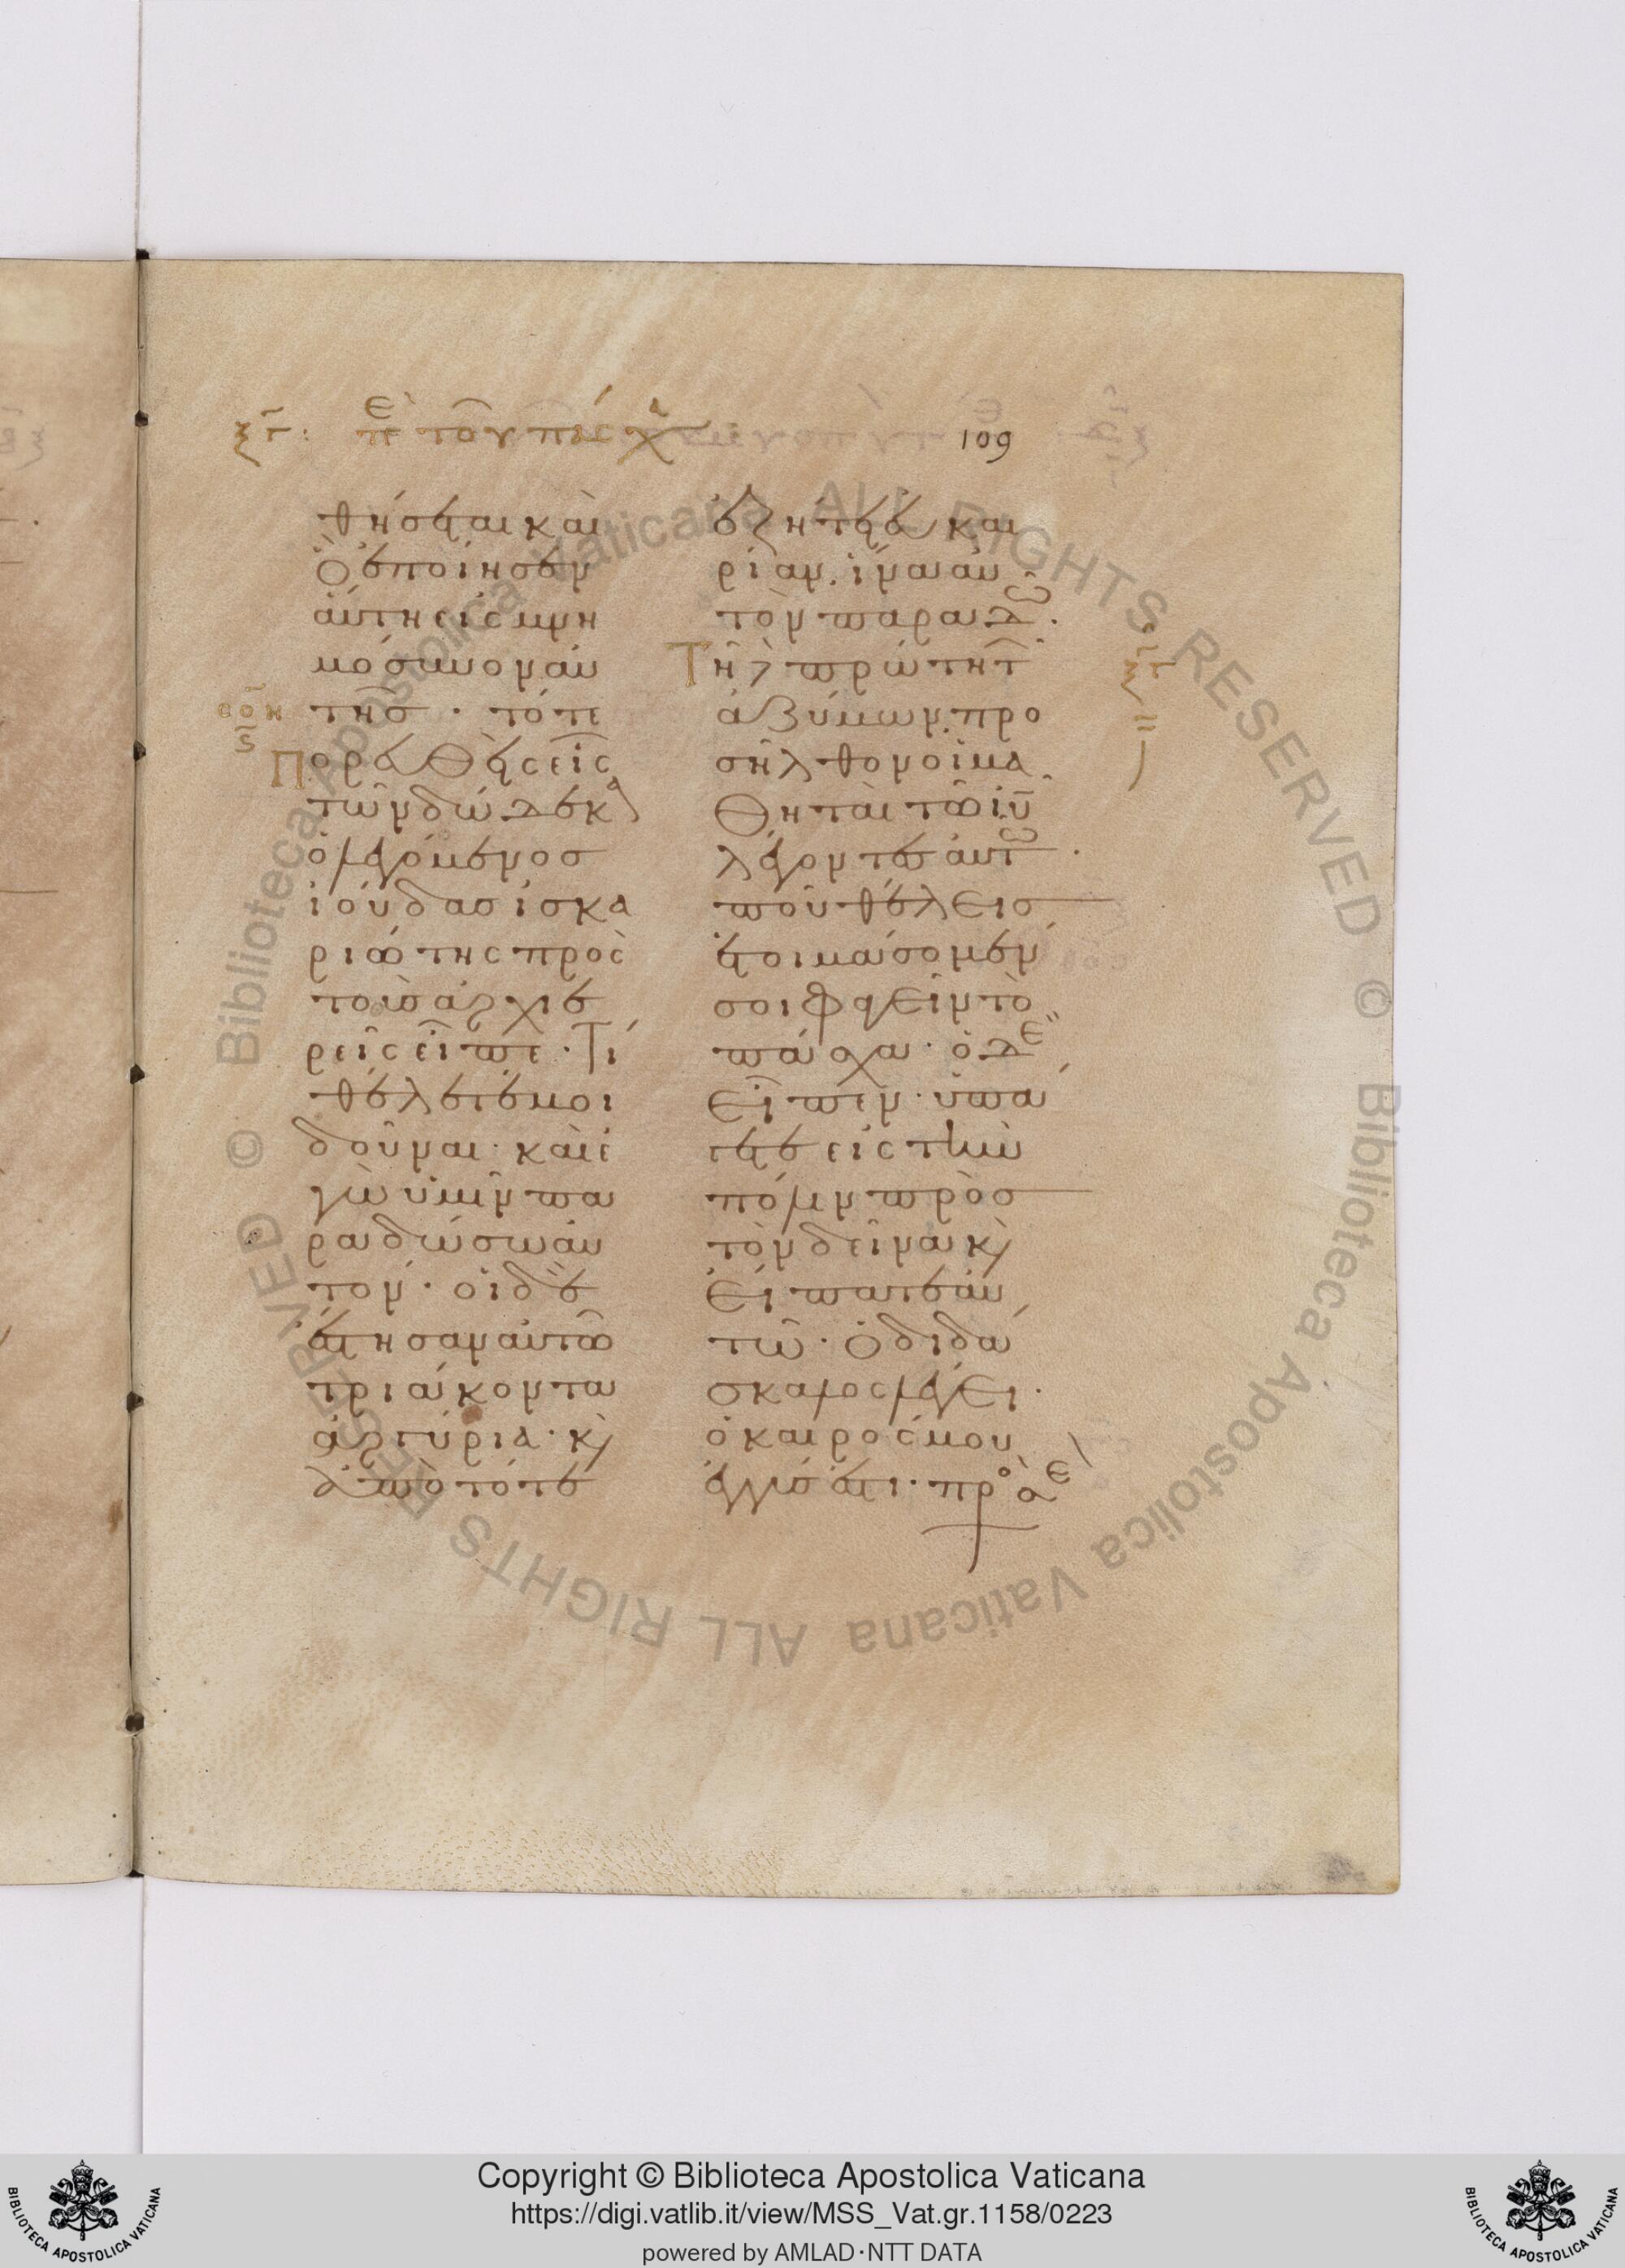 ξ̅γ̅: πε̅ὶ τοῦ πάσχα
109
θήσεται καὶ
ὃ ἐποίησεν
αὕτη εἰς μνη
μόσυνον αὐ
τῆσ · τότε
Πορευθεὶς εἷς
τῶν δώδεκα
ὁ λεγόμενοσ
ἰούδασ ἰσκα
ριώτης πρὸς
τοὺσ ἀρχιε
ρεῖς εἶπε · Τί
θέλετέ μοι
δοῦναι · καὶ ἐ
γὼ ὑμῖν πα
ραδώσω αὐ
τόν · οἱ δὲ
ἔστησαν αὐτῶ
τριάκοντα
ἀργύρια · κ̀
ἀπὸ τότε
ἐζήτει εὐκαι
ρίαν, ἵνα αὐ
τὸν παραδῶ ·
Τῆ δὲ πρώτη τ̅
ἀζύμων, προ
σῆλθον οἱ μα
θηταὶ τῶ ιυ̅
λέγοντεσ αὐτῶ ·
ποῦ θέλεισ
ἑτοιμάσομέν
σοι φαγεῖν τὸ
πάσχα · ὁ δὲ
εἶπεν · ὑπά
γετε εἰς τὴν
πόλιν πρὸσ
τὸν δεῖνα κ̀
εἴπατε αὐ
τῶ · ὁ διδά
σκαλος λέγει ·
ὁ καιρός μου
ἐγγύς ἐστι · πρὸσ σὲ
Copyright © Biblioteca Apostolica Vaticana
https://digi.vatlib.it/view/MSS_Vat.gr.1158/0223
powered by AMLAD·NTT DATA
BIBLIOTECA APOSTOLICA VATICANA
BIBLIOTECA APOSTOLICA VATICANA
© Biblioteca Apostolica Vaticana ALL RIGHTS RESERVED © Biblioteca Apostolica Vaticana ALL RIGHTS RESERVED